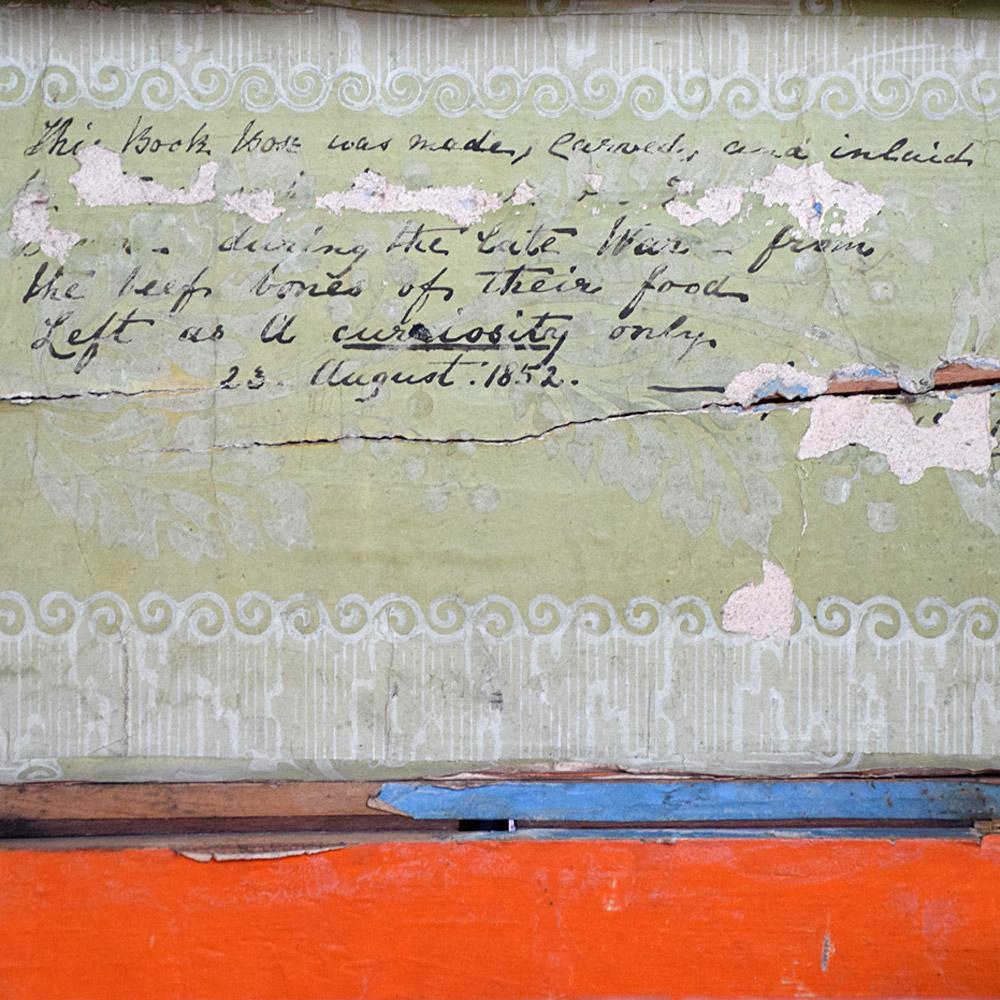 This Book Box was made, Carved, and inlaid
during the Late War - from
the beef bones of their food
Left as a curriosity only.
23. August. 1852.